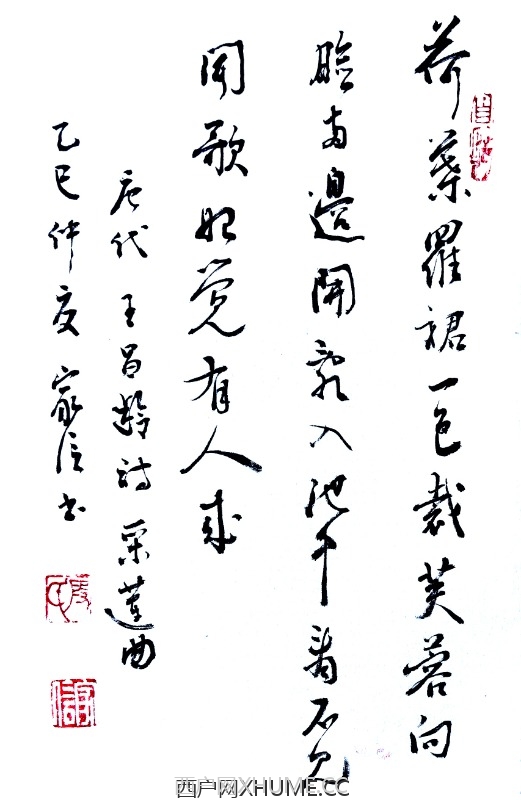 荷葉羅裙一色裁芙蓉向
臉两邊開亂入池中看不见
聞歌始觉有人来
唐代王昌齡詩采蓮曲
乙巳仲夏家信书
西户网XHUME.CC